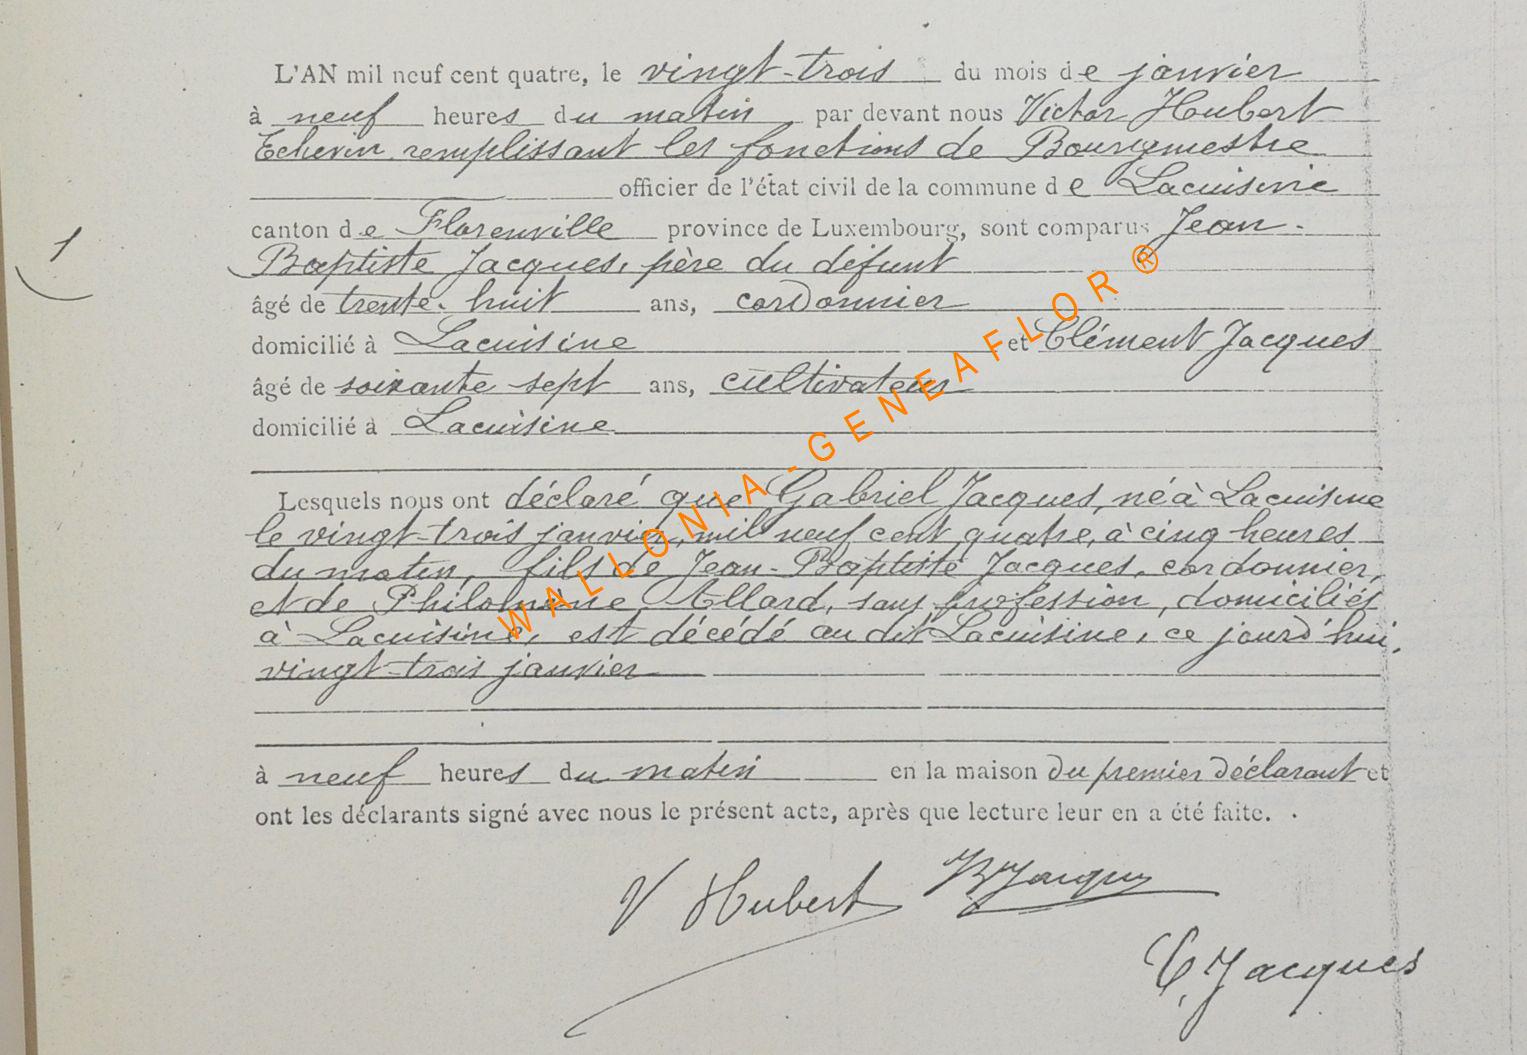 L'AN mil neuf cent quatre, le vingt-trois du mois de janvier
à neuf heures du matin par devant nous Victor Hubert
Echevin remplissant les fonctions de Bourgmestre
officier de l'état civil de la commune de Lacuisine
canton de Florenville province de Luxembourg, sont comparus Jean-
1
Baptiste Jacques, père du défunt
âgé de trente-huit ans, cordonnier
domicilié à Lacuisine et Clément Jacques
âgé de soixante sept ans, cultivateur
domicilié à Lacuisine
Lesquels nous ont déclaré que Gabriel Jacques, né à Lacuisine
le vingt-trois janvier, mil neuf cent quatre, à cinq heures
du matin, fils de Jean-Baptiste Jacques, cordonnier,
et de Philomène Allard, sans profession, domiciliés
à Lacuisine, est décédé au dit Lacuisine, ce jourd'hui,
vingt-trois janvier
à neuf heures du matin en la maison du premier déclarant et
ont les déclarants signé avec nous le présent acte, après que lecture leur en a été faite.
V Hubert JBJacques
C. Jacques
WALLONIA-GENEAFLOR ®